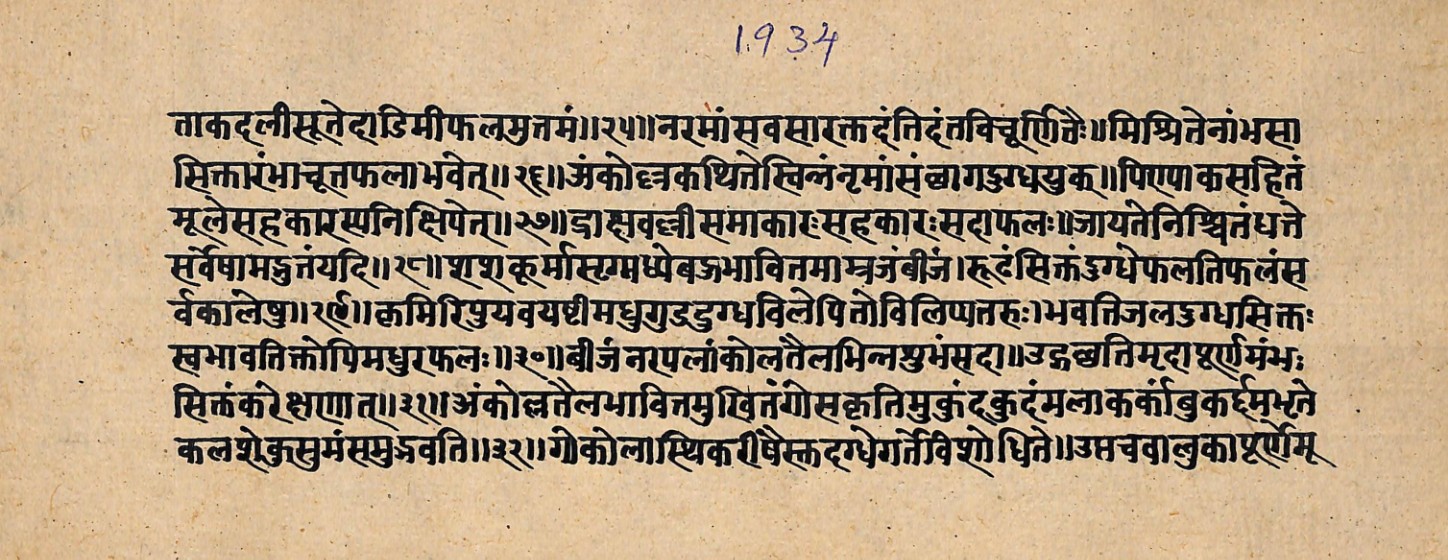 1934
ताकदलीसूतेदाडिमीफलमुत्तमं॥२५॥नरमांसवसारक्तदंतिदंतविचूर्णितैः॥मिश्रितेनांभसा
सिक्तारंभाचूतफलाभवेत्॥२६॥अंकोल्लकथितेस्विन्नंनृमांसंछागदुग्धयुक्॥पिण्पाकसहितं
मूलेसहकारस्पनिक्षिपेत्॥२७॥द्राक्षावल्लीसमाकारःसहकारःसदाफलः॥जायतेनिश्चितंधत्ते
सर्वेषामद्भुतंयदि॥२८॥शशकूर्मासृग्मध्येबऊभावितमाम्रजंबीजं।रूढंसिक्तंदुग्धेफलतिफलंस
र्वकालेषु॥२९॥कृमिरिपुयवयष्टीमधुगुडदुग्धविलेपितोविलिप्पतरुः।भवतिजलदुग्धसिक्तः
स्वभावतिक्तोपिमधुरफलः॥३०॥बीजंनरपलांकोलतैलभिन्नशुभंसदा॥उद्गछतिमृदापूर्णेमंभः
सिक्तंकरेक्षणात्॥३१॥अंकोल्लतैलभावितमुखितंगोसकृतिमुकुंदकुदंमलाकर्कांबुकर्द्दमभृते
कलशेकुसुमंसमुद्भवति॥३२॥गोकोलास्थिकरीषैस्क्तदग्धेगर्तेविशोधिते॥उप्तचवालुकापूर्णेमू